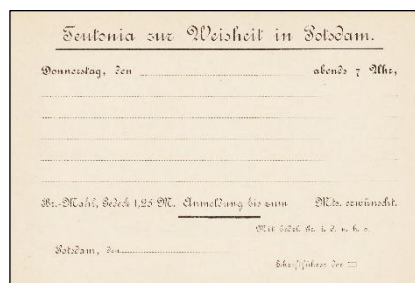 Teutonia zur Weisheit in Potsdam.
Donnerstag, den abends 7 Uhr,
Br.-Mahl, Gedeck 1,25 M. Anmeldung bis zum Mts. erwünscht.
Mit bdrl. Gr. i. d. u. h. Z.
Potsdam, den
Schriftführer der